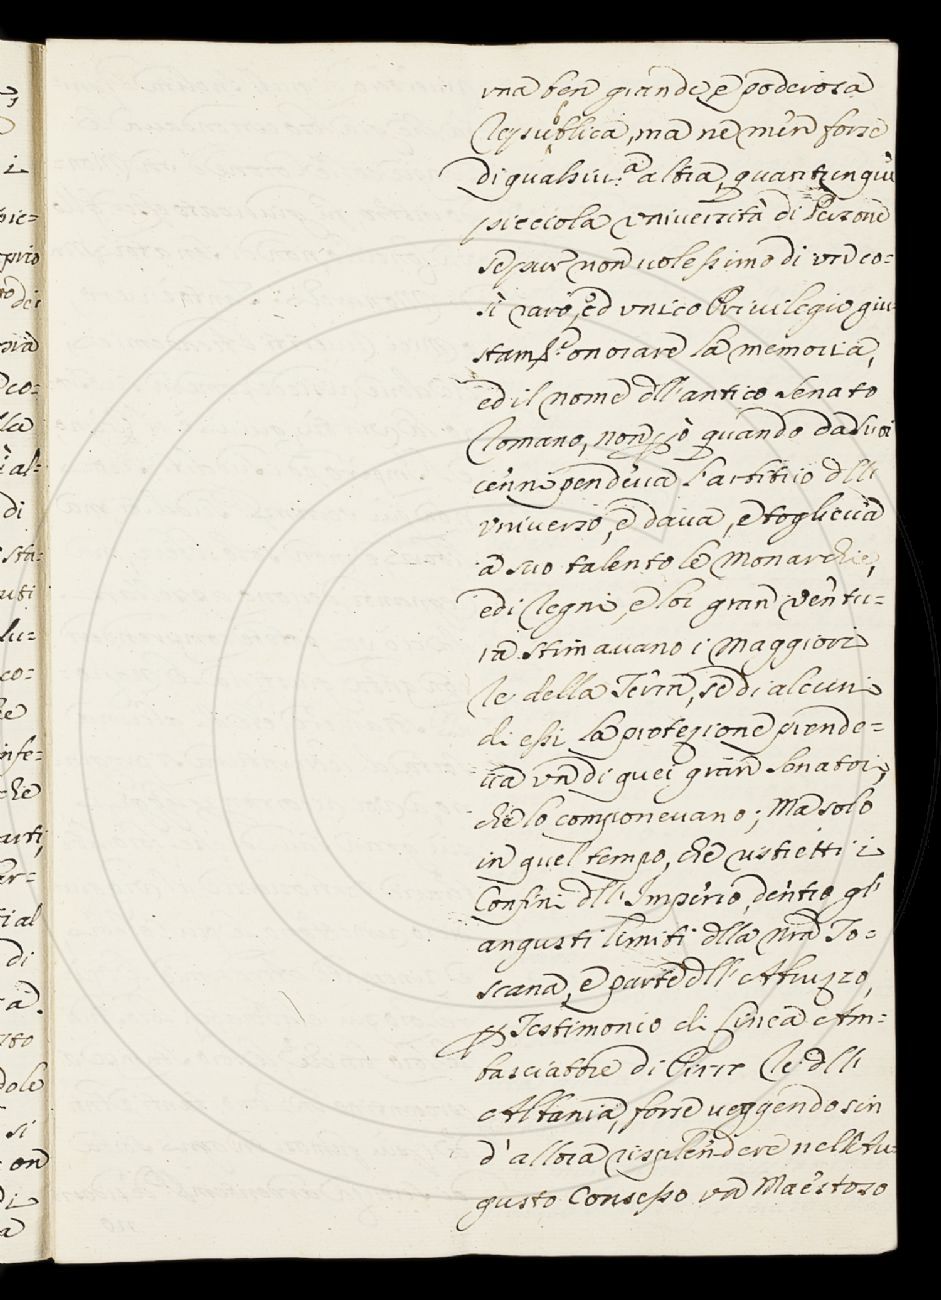 una ben grande, e poderosa
Republica, ma ne men forse
di qualsiu.ª altra, quantunque
picciola università di Persone
se pur non volessimo di un co=
sì raro, ed unico Privilegio giu=
stam.e onorare la memoria,
ed il nome dll'antico Senato
Romano, non però quando da suoi
cenni pendeva l'arbitrio dll'
universo, e dava, e toglieva
a suo talento le Monarchie,
ed i Regni, e lor gran ventu=
ra stimavano i Maggiori
Re della Terra, se di alcuni
di essi la protezione prende=
va un di quei gran Senatori,
che lo componevano; Ma solo
in quel tempo, che ristretti i
Confini dll'Imperio, dentro gl'
angusti limiti dlla nra To=
scana, e parte dll'Abruzzo,
per Testimonio di Cinea Am=
basciatore di Pirro Re dll'
Albania, forse veggendo sin
d'allora risplendere nell'Au=
gusto Consesso un Maestoso
pie=
prio
dei
co=
lla
al=
di
sta=
lu=
co=
infe=
che
arti,
er=
ti al
di
dole
si
on